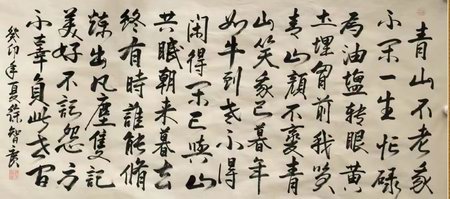 青山不老我
不閑一生忙碌
為油塩转眼黄
土埋胸前我笑
青山顔不變青
山笑我已暮年
如牛到老不得
閑得閑已與山
共眠朝来暮去
終有時誰能脩
煉出凡塵隻記
美好不記怨方
不辜負此世間
癸卯年夏薛智